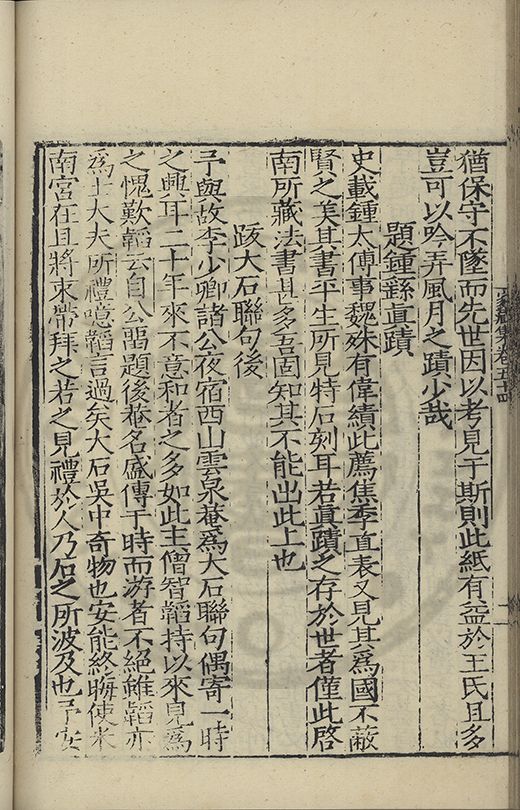 猶保守不墜而先世因以考見于斯則此紙有益於王氏且多
豈可以吟弄風月之蹟少哉
題鍾繇真蹟
史載鍾太傅事魏殊有偉績此薦焦季直表又見其爲國不蔽
賢之美其書平生所見特石刻耳若真蹟之存於世者僅此啓
南所藏法書甚多吾固知其不能出此上也
跋大石聯句後
予與故李少卿諸公夜宿西山雲泉菴爲大石聯句偶寄一時
之興耳二十年來不意和者之多如此主僧智韜持以來見爲
之愧歎韜云自公畱題後菴名盛傳于時而游者不絕雖韜亦
爲士大夫所禮噫韜言過矣大石吳中奇物也安能終晦使米
南宮在且將束帶拜之若之見禮於人乃石之所波及也予安
家藏集卷五十四